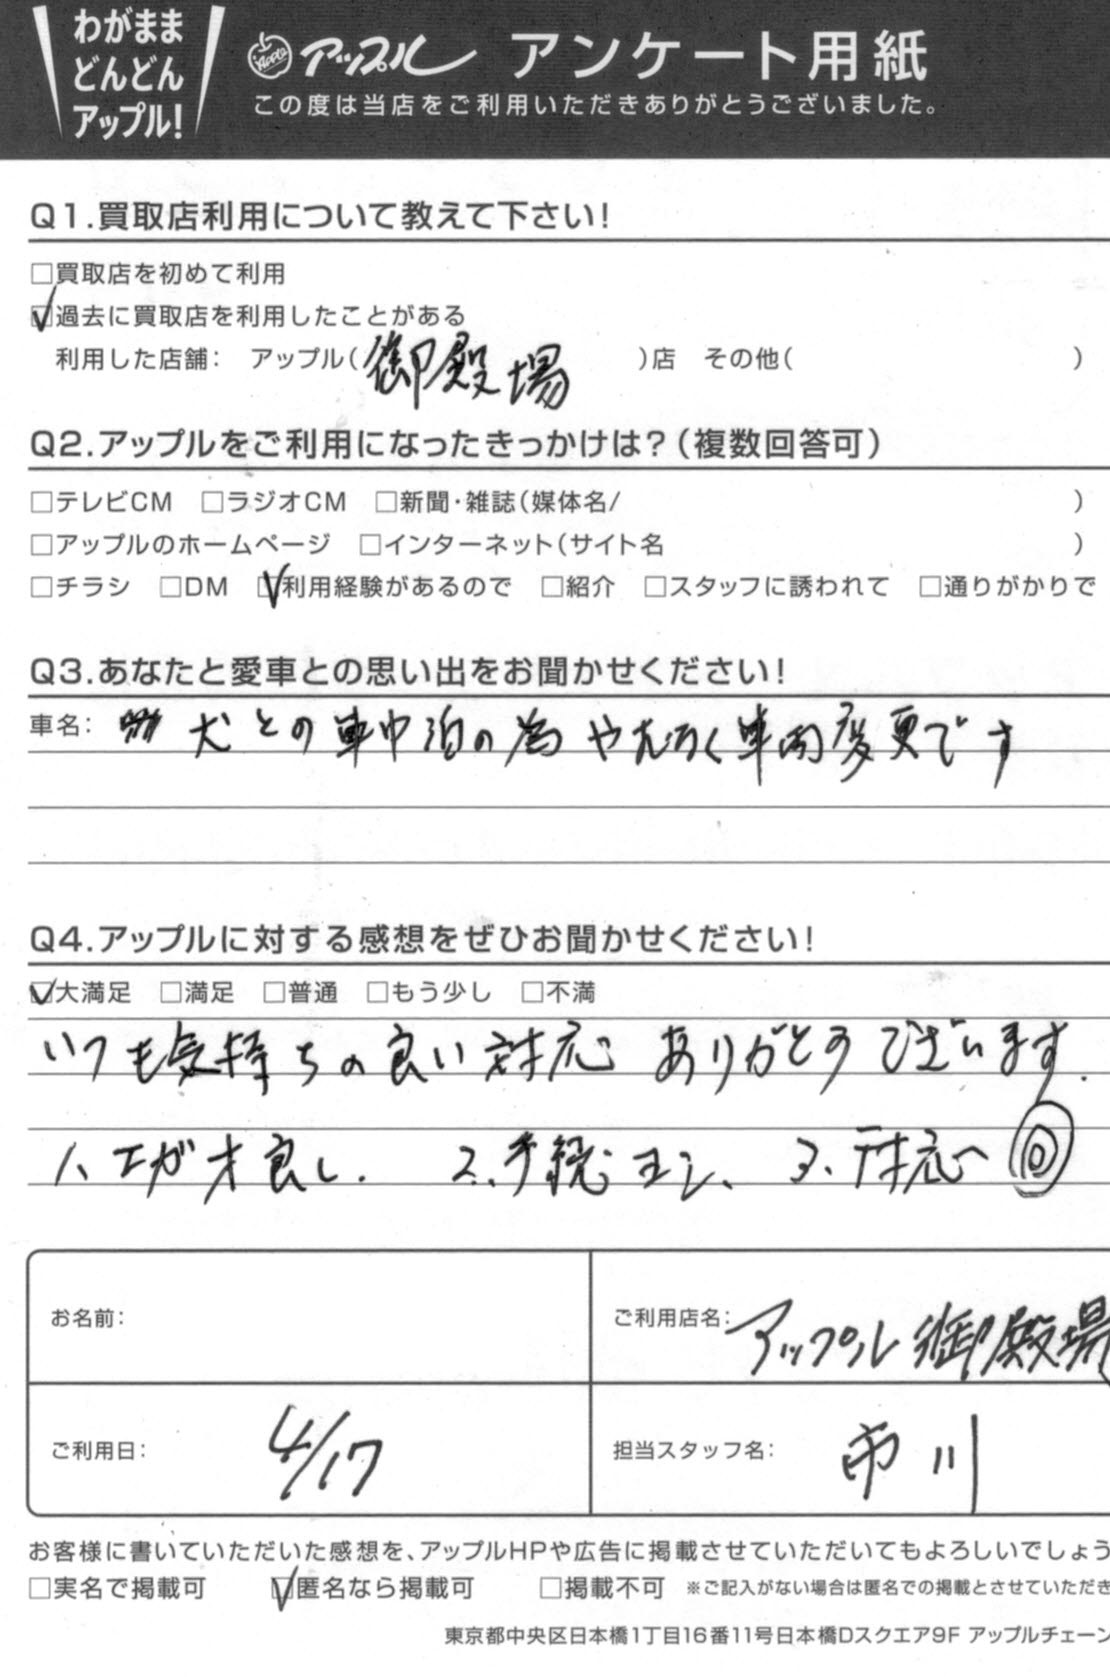 わがまま
どんどん
アップル!
Apple アップル アンケート用紙
この度は当店をご利用いただきありがとうございました。
Q1.買取店利用について教えて下さい!
□買取店を初めて利用
☑過去に買取店を利用したことがある
利用した店舗： アップル(御殿場)店 その他( )
Q2.アップルをご利用になったきっかけは?(複数回答可)
□テレビCM □ラジオCM □新聞・雑誌(媒体名/ )
□アップルのホームページ □インターネット(サイト名 )
□チラシ □DM ☑利用経験があるので □紹介 □スタッフに誘われて □通りがかりで
Q3.あなたと愛車との思い出をお聞かせください!
車名： 犬との車中泊の為やむなく車両変更です
Q4.アップルに対する感想をぜひお聞かせください!
☑大満足 □満足 □普通 □もう少し □不満
いつも気持ちの良い対応 ありがとうございます.
1、エガオ良し. 2、手続 ヨシ、 3、対応へ ◎
お名前：
ご利用店名： アップル御殿場
ご利用日： 4/17
担当スタッフ名： 市川
お客様に書いていただいた感想を、アップルHPや広告に掲載させていただいてもよろしいでしょう
□実名で掲載可 ☑匿名なら掲載可 □掲載不可 ※ご記入がない場合は匿名での掲載とさせていただき
東京都中央区日本橋1丁目16番11号日本橋Dスクエア9F アップルチェーン